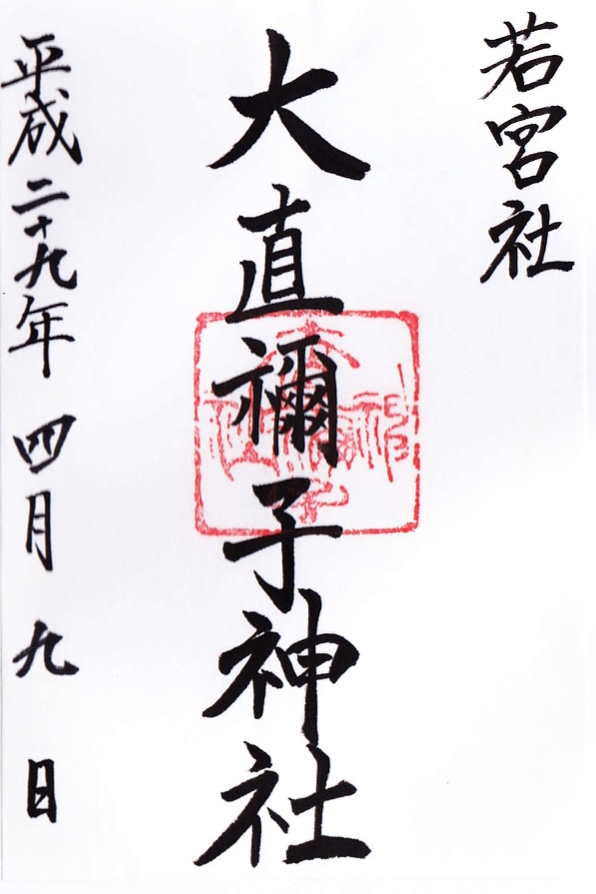 若宮社
大直禰子神社
平成二十九年四月九日